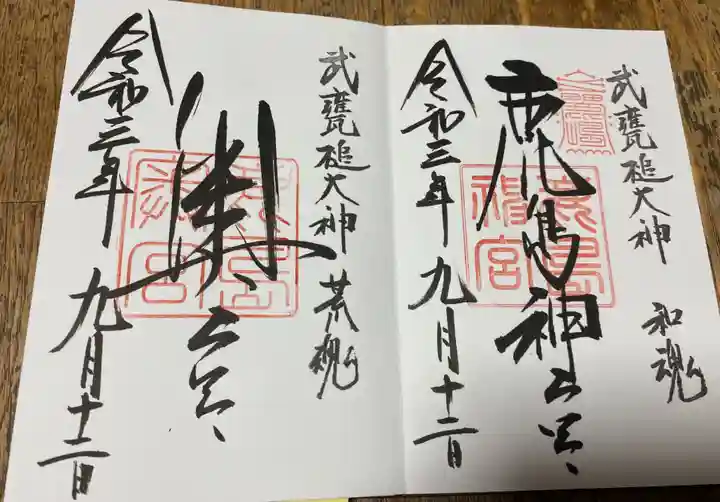 武甕槌大神 和魂
鹿島神宮
令和三年九月十二日
武甕槌大神 荒魂
令和三年九月十二日
鹿島神宮